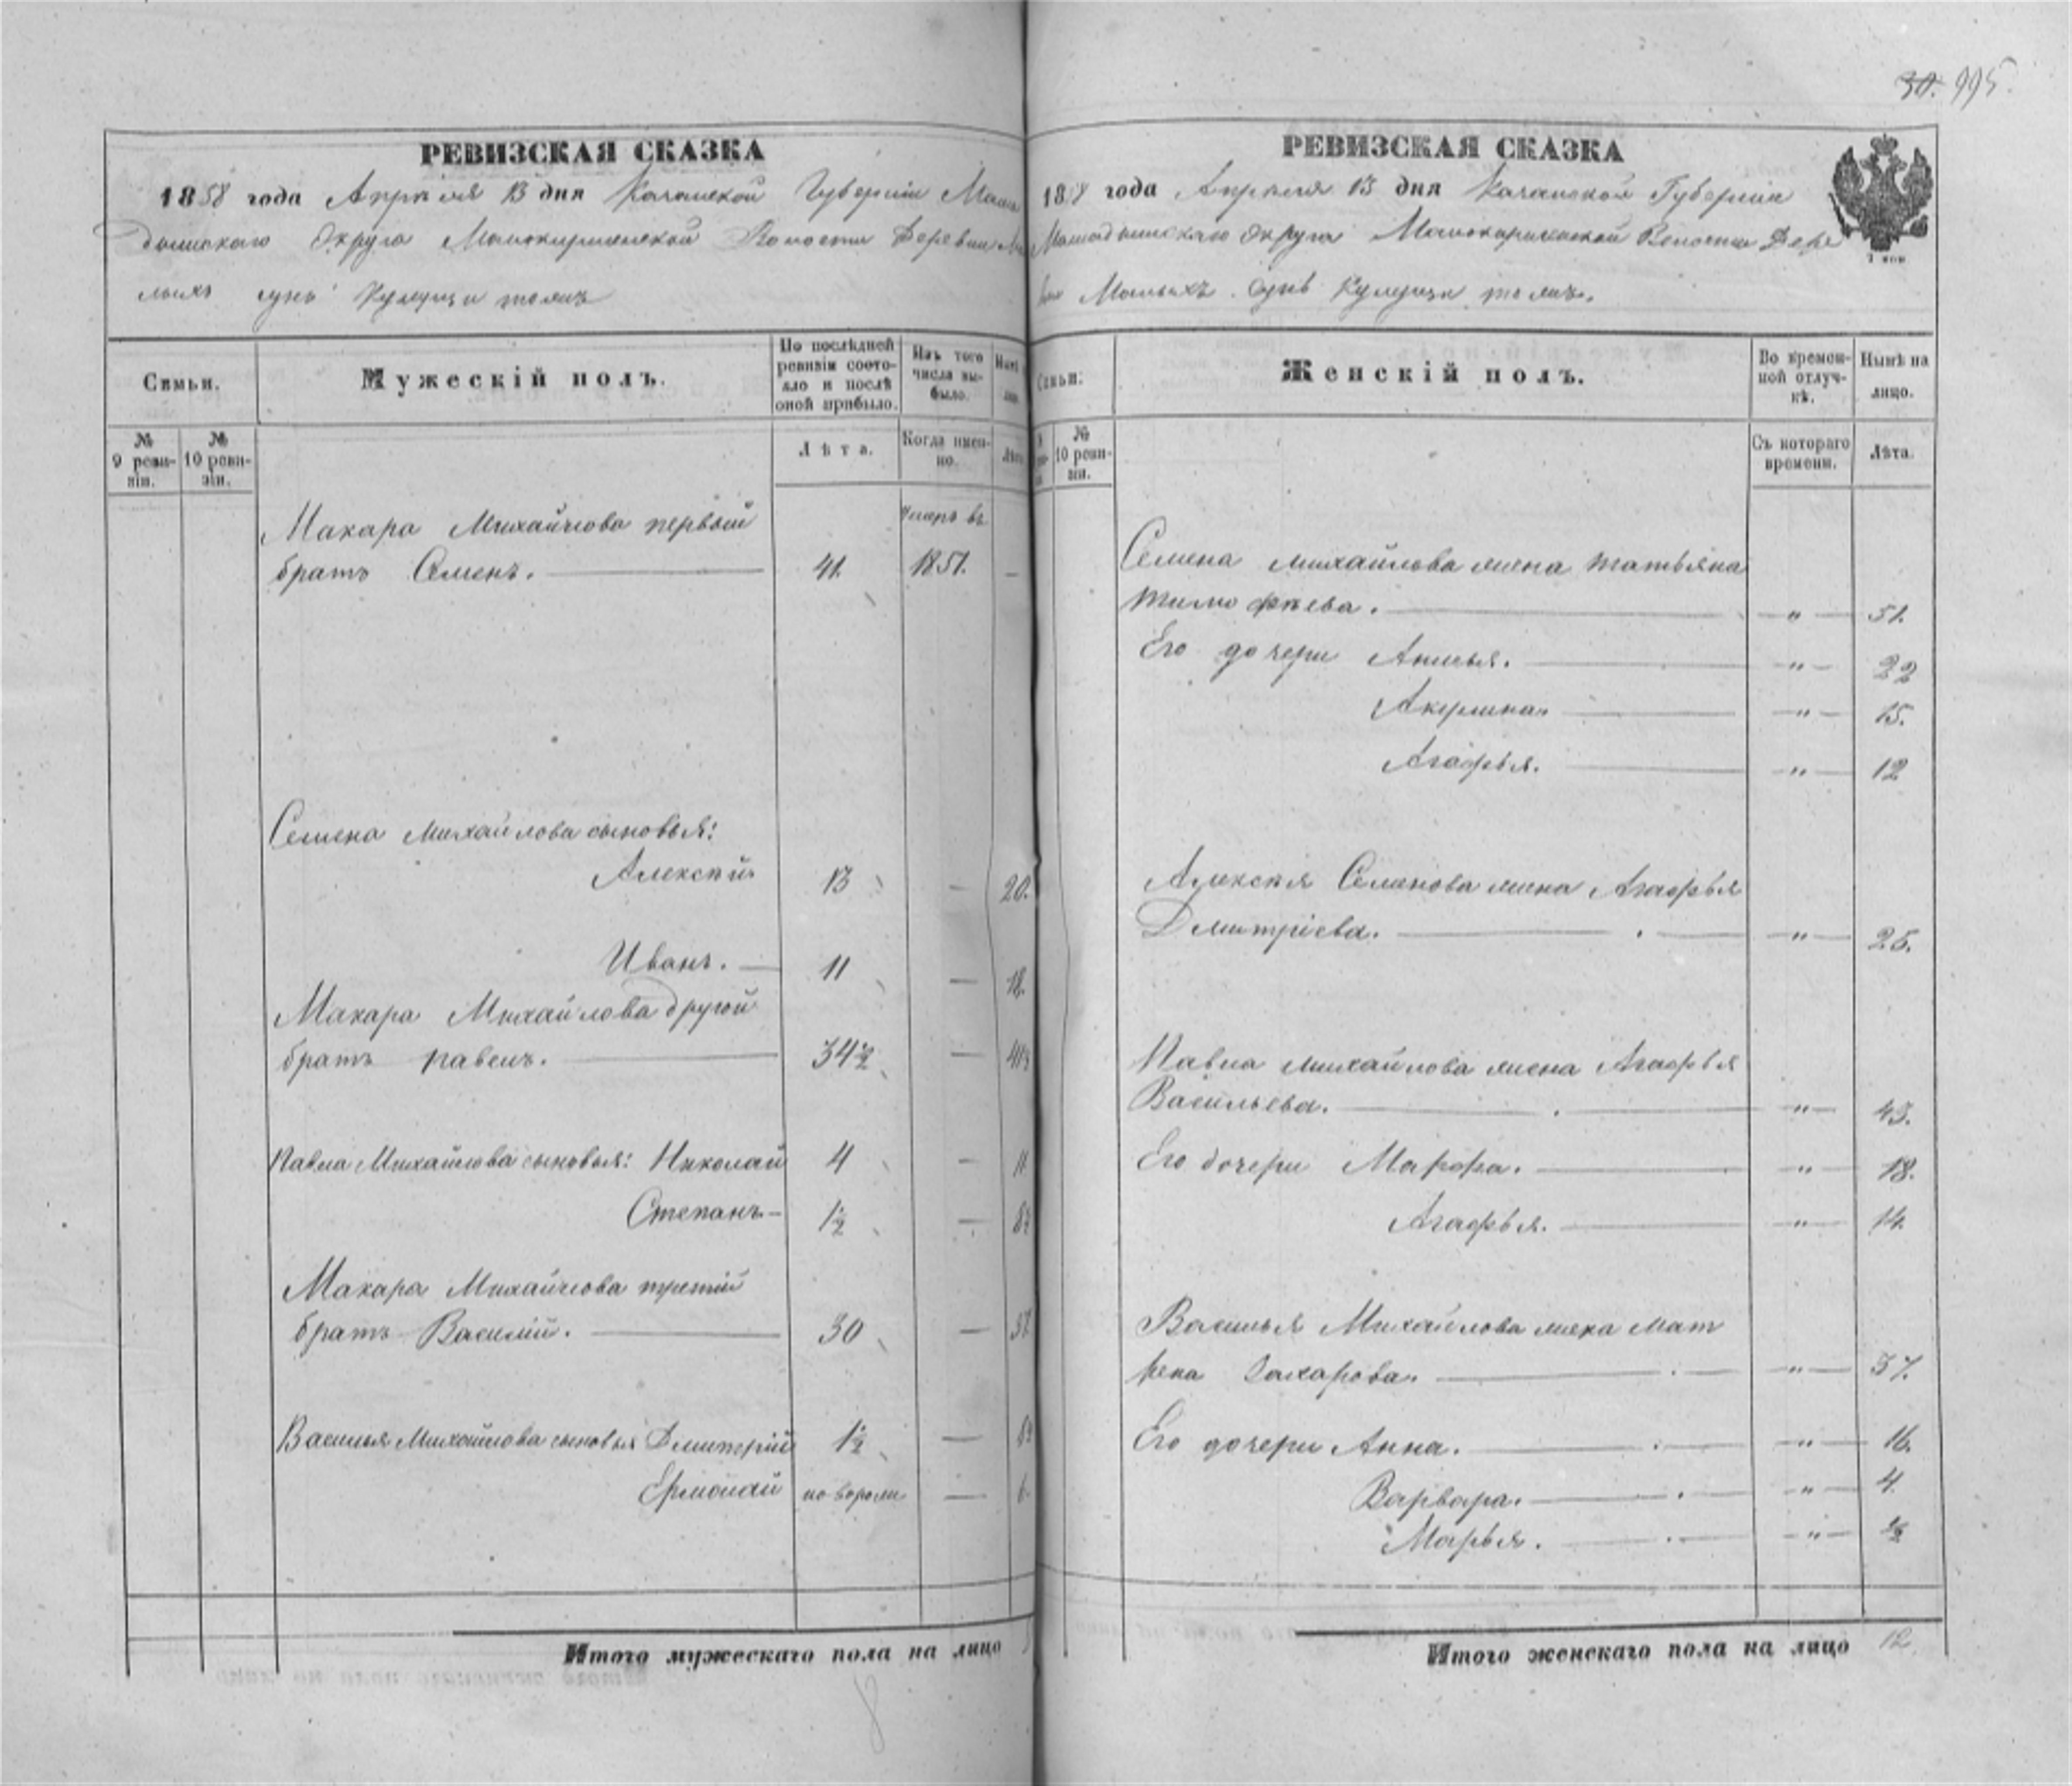 30. 995.
РЕВИЗСКАЯ СКАЗКА
1858 года Апреля 13 дня Казанской Губерніи Мама
дышскаго Округа Мамокирменской Волости Деревни Ма
лыхъ сунь тожъ
Семьи.
Мужескій полъ.
По послѣдней ревизіи состояло и послѣ оной прибыло.
Изъ того числа выбыло.
№ 9 ревизіи.
№ 10 ревизіи.
Лѣта.
Когда именно.
Лѣта
Макара Михайлова первый Умеръ въ
братъ Семенъ. 41. 1851. —
Семена Михайлова сыновья:
Алексѣй 13 — 20.
Иванъ. 11 — 18.
Макара Михайлова другой
братъ Павелъ. 34½ — 41½
Павла Михайлова сыновья: Николай 4 — 11
Степанъ 1½ — 8½
Макара Михайлова третій
братъ Василій. 30 — 37
Василья Михайлова сыновья Дмитрій 1½ — 8½
Ермолай — 6.
Итого мужескаго пола на лицо
8
РЕВИЗСКАЯ СКАЗКА
1858 года Апреля 13 дня Казанской Губерніи
Мамадышскаго Округа Волости Дере
вни Малыхъ Сунь тожъ.
Семьи.
Женскій полъ.
Во временной отлучкѣ.
Нынѣ на лицо.
№ 10 ревизіи.
Съ котораго времени.
Лѣта.
Семена Михайлова жена Татьяна
Тимофѣева. " 51.
Его дочери Анисья. " 22
Акулина " 15.
Агафья. " 12
Алексѣя Семенова жена Агафья
Дмитріева. " 25.
Павла Михайлова жена Агафья
Васильева. " 43.
Его дочери Марфа. " 18.
Агафья. " 14.
Василья Михайлова жена Мат
рена Захарова. " 37.
Его дочери Анна. " 16.
Варвара. " 4
Марья. " ½
Итого женскаго пола на лицо 12